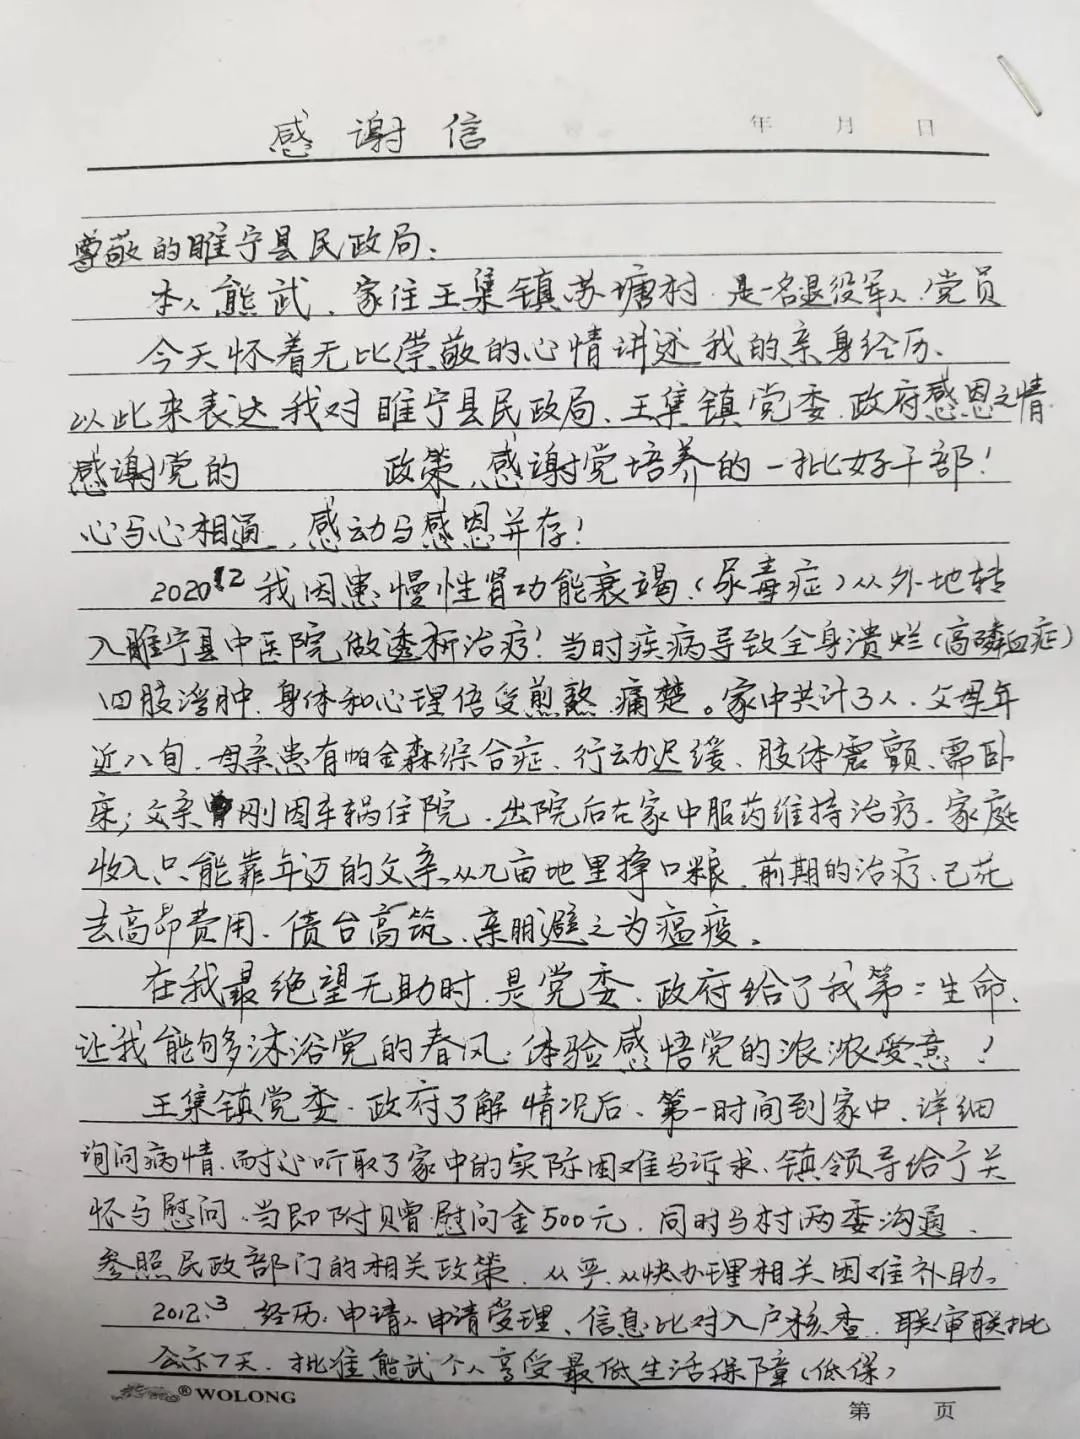 感谢信
年 月 日
尊敬的睢宁县民政局:
本人熊武、家住王集镇苏塘村、是一名退役军人、党员
今天怀着无比崇敬的心情讲述我的亲身经历、
以此来表达我对睢宁县民政局、王集镇党委、政府感恩之情
感谢党的 政策、感谢党培养的一批好干部!
心与心相通、感动与感恩并存!
2020.12 我因患慢性肾功能衰竭、(尿毒症)从外地转
入睢宁县中医院做透析治疗!当时疾病导致全身溃烂(高磷血症)
四肢浮肿、身体和心理倍受煎熬、痛楚。家中共计3人、父母年
近八旬、母亲患有帕金森综合症、行动迟缓、肢体震颤、需卧
床;父亲刚因车祸住院、出院后在家中服药维持治疗、家庭
收入只能靠年迈的父亲从几亩地里挣口粮、前期的治疗、已花
去高昂费用、债台高筑、亲朋避之为瘟疫。
在我最绝望无助时、是党委、政府给了我第二生命、
让我能够沐浴党的春风、体验感悟党的浓浓爱意!
王集镇党委、政府了解情况后、第一时间到家中、详细
询问病情、耐心听取了家中的实际困难与诉求、镇领导给予关
怀与慰问、当即附赠慰问金500元、同时与村两委沟通、
参照民政部门的相关政策、从严、从快办理相关困难补助。
2012.3 经历:申请人申请受理、信息比对入户核查、联审联批
公示7天、批准熊武个人享受最低生活保障(低保)
® WOLONG
第 页